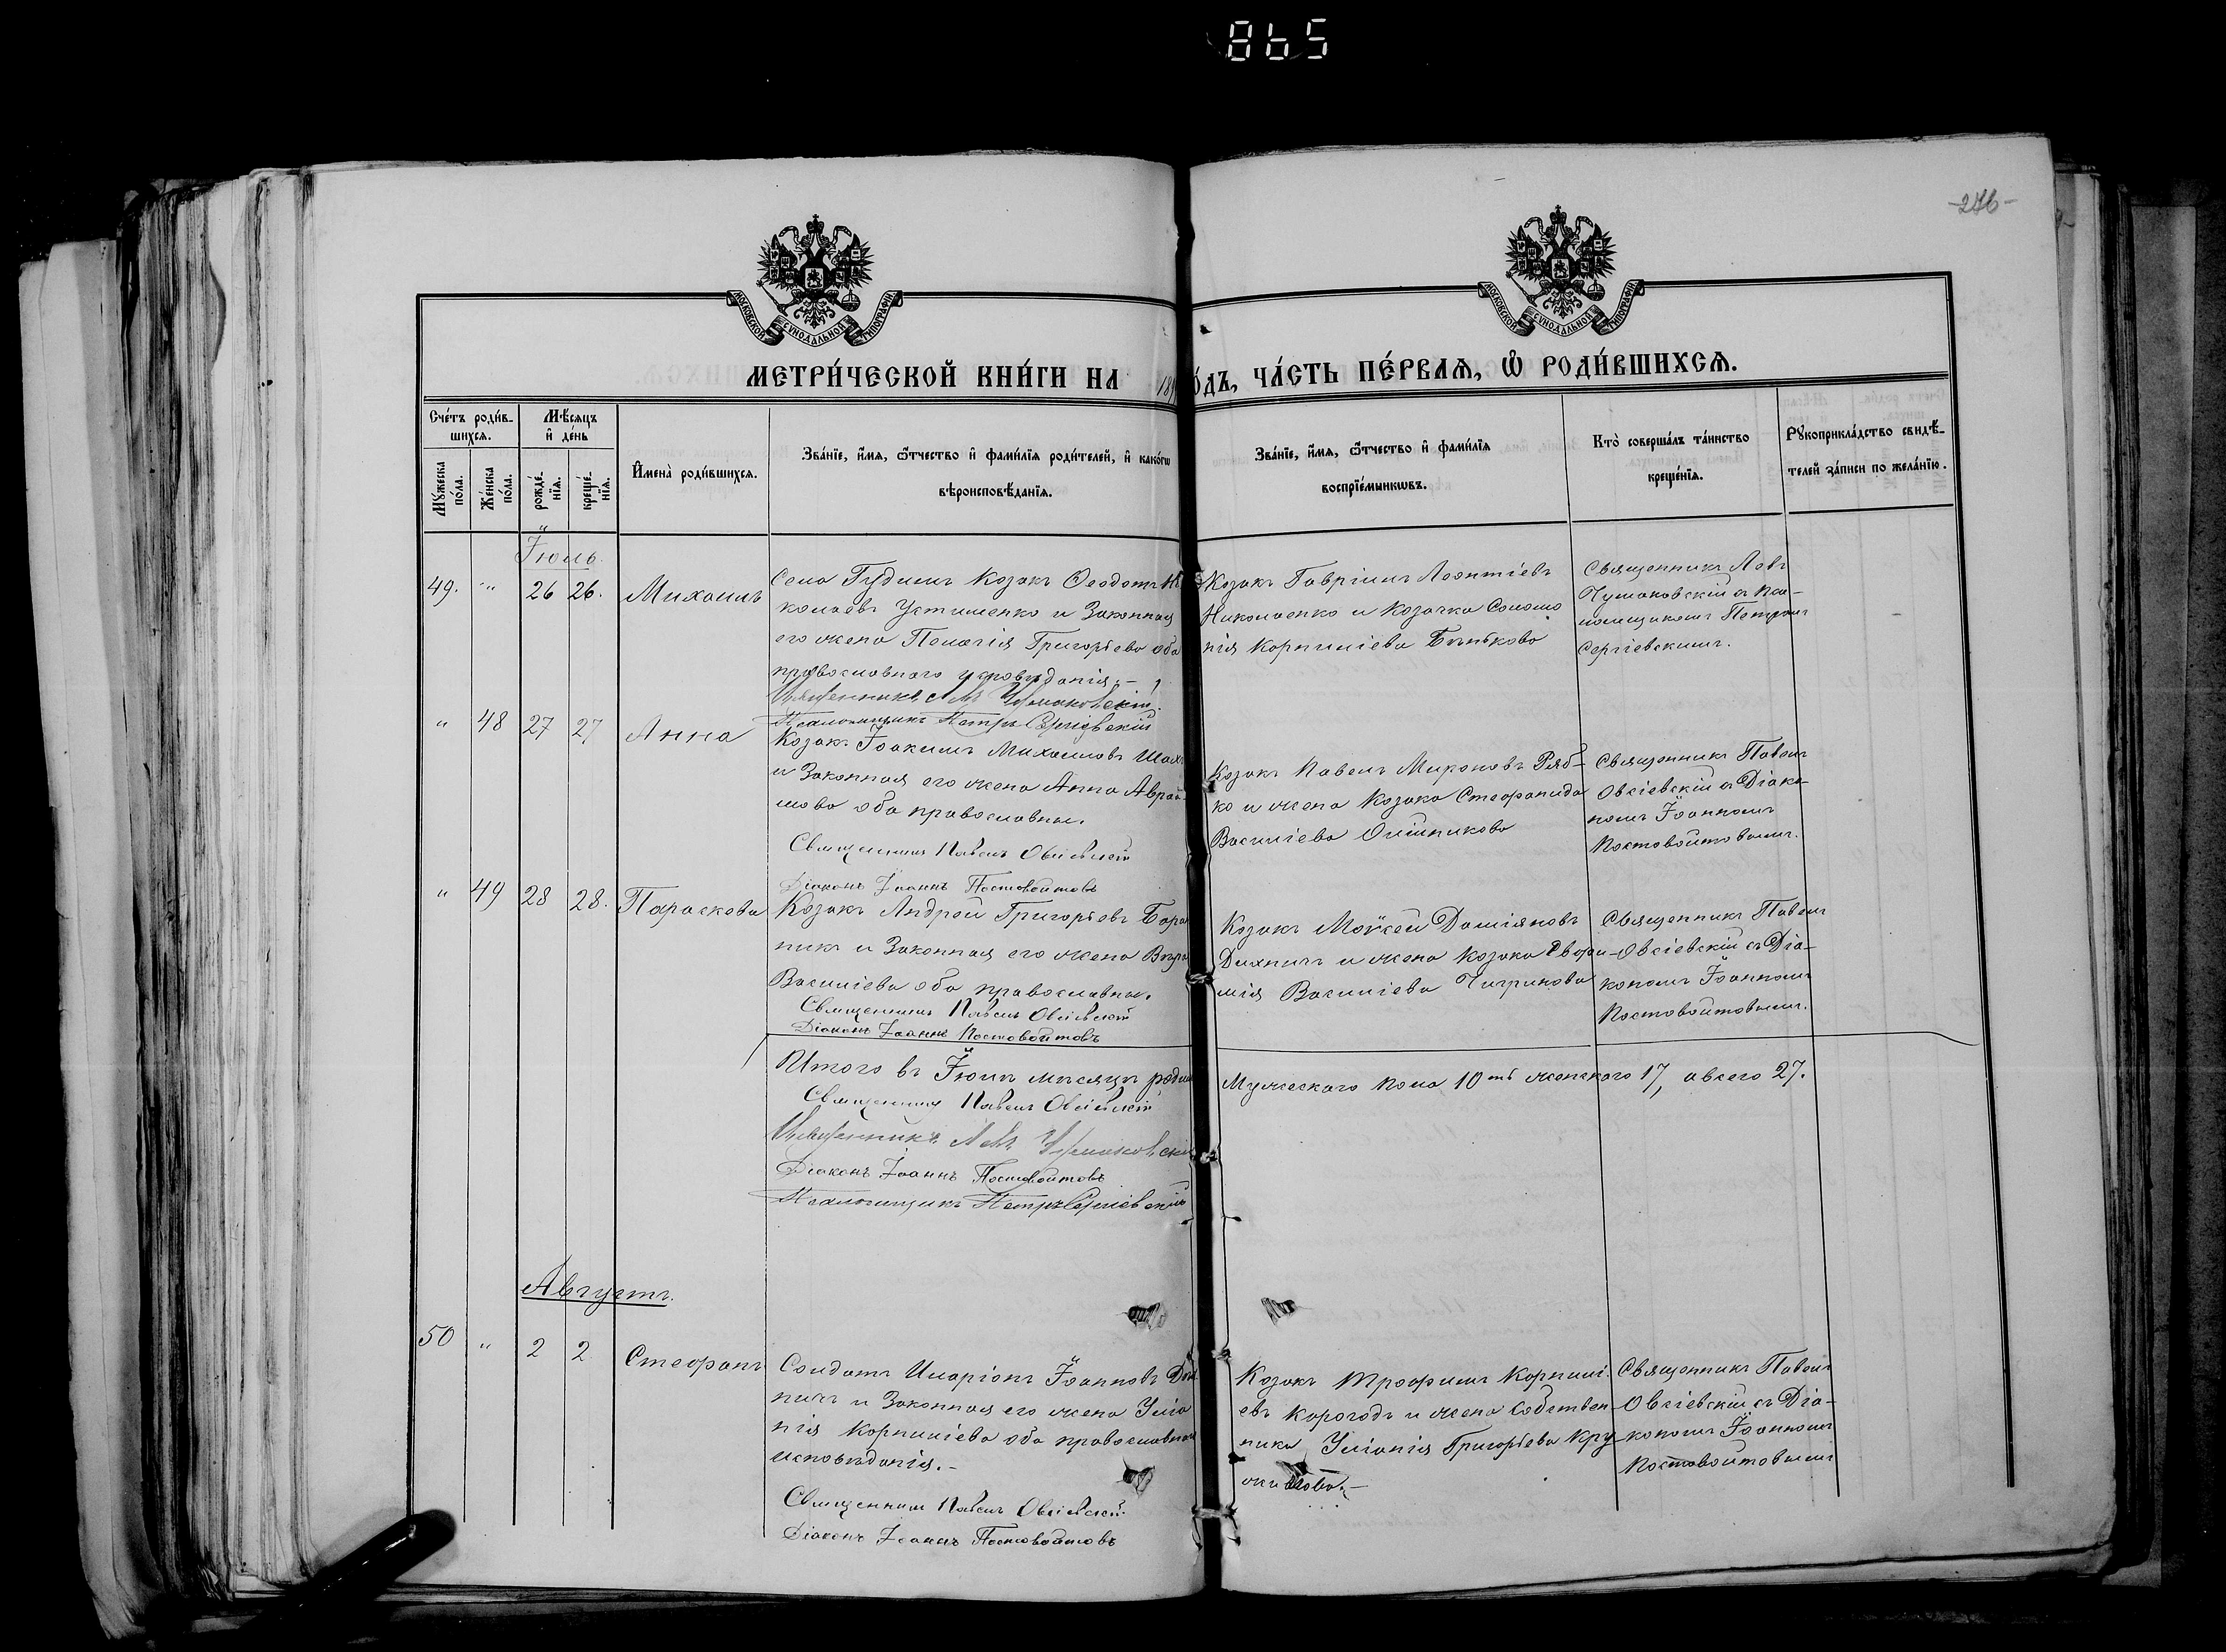 865
-246-
МОСКОВСКОЙ СѴНОДАЛЬНОЙ ТИПОГРАФІИ
МОСКОВСКОЙ СѴНОДАЛЬНОЙ ТИПОГРАФІИ
МЕТРИ́ЧЕСКОЙ КНИ́ГИ НА 18
О́ДЪ, ЧА́СТЬ ПЕ́РВАѦ, Ѡ҆ РОДИ́ВШИХСѦ.
Сче́тъ роди́в-
шихся.
Мѣ́сяцъ
и҆ де́нь
Мꙋ́жеска по́ла.
Же́нска по́ла.
рожде́-нїя.
креще́-нїя.
И҆мена̀ роди́вшихся.
Зва́нїе, и҆́мя, ѻ҆́тчество и҆ фами́лїя роди́телей, и҆ како́гѡ
вѣроисповѣ́данїя.
Зва́нїе, и҆́мя, ѻ҆́тчество и҆ фами́лїя
воспрїе́мникѡвъ.
Кто̀ соверша́лъ та́инство
креще́нїя.
Рꙋкоприкла́дство свидѣ́-
телей за́писи по жела́нїю.
Іюль.
49. " 26 26. Михаилъ
Села Гудимъ Козакъ Ѳеодотъ Ни
колаевъ Устименко и Законная
его жена Пелагія Григорьева оба
православнаго исповѣданія.-
Священникъ Левъ Чумаковскій.
Псаломщикъ Петръ Сергіевскій
Козакъ Гавріилъ Леонтіевъ
Николаенко и Козачка Соломо
нія Корниліева Бѣлькова
Священникъ Левъ
Чумаковскій съ Пса-
ломщикомъ Петромъ
Сергіевскимъ.
" 48 27 27 Анна
Козакъ Іоакимъ Михаиловъ Шах
и Законная его жена Анна Авраа-
мова оба православны.
Священникъ Павелъ Овсіевскій
Діаконъ Іоаннъ Постовойтовъ
Козакъ Павелъ Мироновъ Ряб-
ко и жена Козака Стефанида
Василіева Олійникова
Священникъ Павелъ
Овсіевскій съ Діако-
номъ Іоанномъ
Постовойтовымъ.
" 49 28 28. Параскева
Козакъ Андрей Григорьевъ Бара
никъ и Законная его жена Вѣра
Василіева оба православны.
Священникъ Павелъ Овсіевскій
Діаконъ Іоаннъ Постовойтовъ
Козакъ Моѵсей Даміяновъ
Дихничъ и жена Козака Евфи-
мія Василіева Чигринова
Священникъ Павелъ
Овсіевскій съ Діа-
кономъ Іоанномъ
Постовойтовымъ.
Итого въ Іюлѣ мѣсяцѣ родил
Мужескаго пола 10ть женскаго 17, а всего 27.
Священникъ Павелъ Овсіевскій
Священникъ Левъ Чумаковскій
Діаконъ Іоаннъ Постовойтовъ
Псаломщикъ Петръ Сергіевскій
Августъ.
50 " 2 2 Стефанъ
Солдатъ Иларіонъ Іоанновъ
ничъ и Законная его жена Уліа
нія Корниліева оба православнаго
исповѣданія.-
Священникъ Павелъ Овсіевскій.
Діаконъ Іоаннъ Постовойтовъ
Козакъ Трофимъ Корнилі-
евъ Корогодъ и жена Собствен-
ника Уліанія Григорьева Кру
жилова.-
Священникъ Павелъ
Овсіевскій съ Діа-
кономъ Іоанномъ
Постовойтовымъ